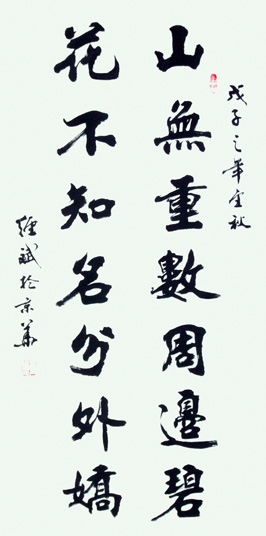 戊子之年金秋
山無重數周邊碧
花不知名分外嬌
斌於京華